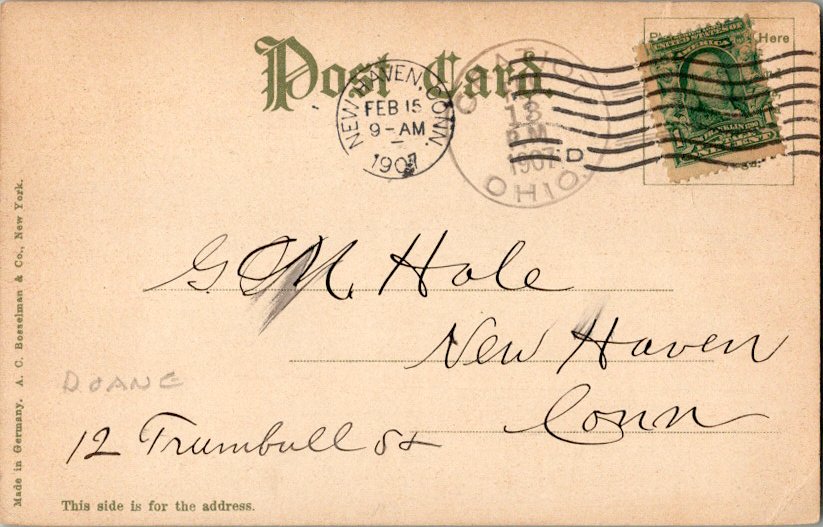 Post Card.
Here
NEW HAVEN, CONN.
FEB 15
9-AM
1907
13
P.M.
1907
D
OHIO.
UNITED STATES OF
AMERICA
1 FRANKLIN 1
G. M. Hale
New Haven
Conn
DOANE
12 Trumbull St
This side is for the address.
Made in Germany. A. C. Bosselman & Co., New York.